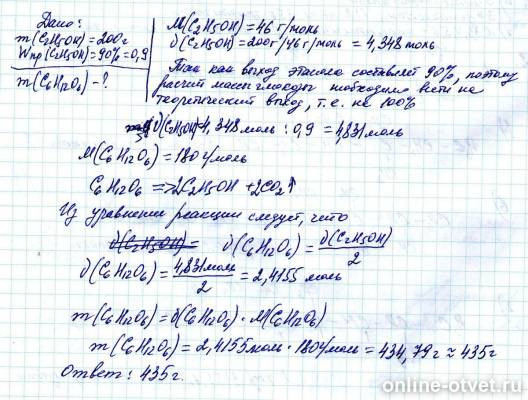 Дано:
m(C2H5OH)=200г
Wпр(C2H5OH)=90%=0,9
m(C6H12O6)-?
M(C2H5OH)=46 г/моль
ϑ(C2H5OH)=200г/46 г/моль = 4,348 моль
Так как выход этанола составляет 90%, поэтому
расчёт массы глюкозы необходимо вести на
теоретический выход, т.е. на 100%
ϑ(C2H5OH)=4,348 моль : 0,9 = 4,831 моль
M(C6H12O6)=180г/моль
C6H12O6 => 2C2H5OH + 2CO2↑
Из уравнения реакции следует, что
ϑ(C2H5OH)= ϑ(C6H12O6)= ϑ(C2H5OH)/2
ϑ(C6H12O6)= 4,831моль/2 = 2,4155 моль
m(C6H12O6)=ϑ(C6H12O6)·M(C6H12O6)
m(C6H12O6)=2,4155моль·180г/моль=434,79г≈435г
Ответ: 435г.
online-otvet.ru